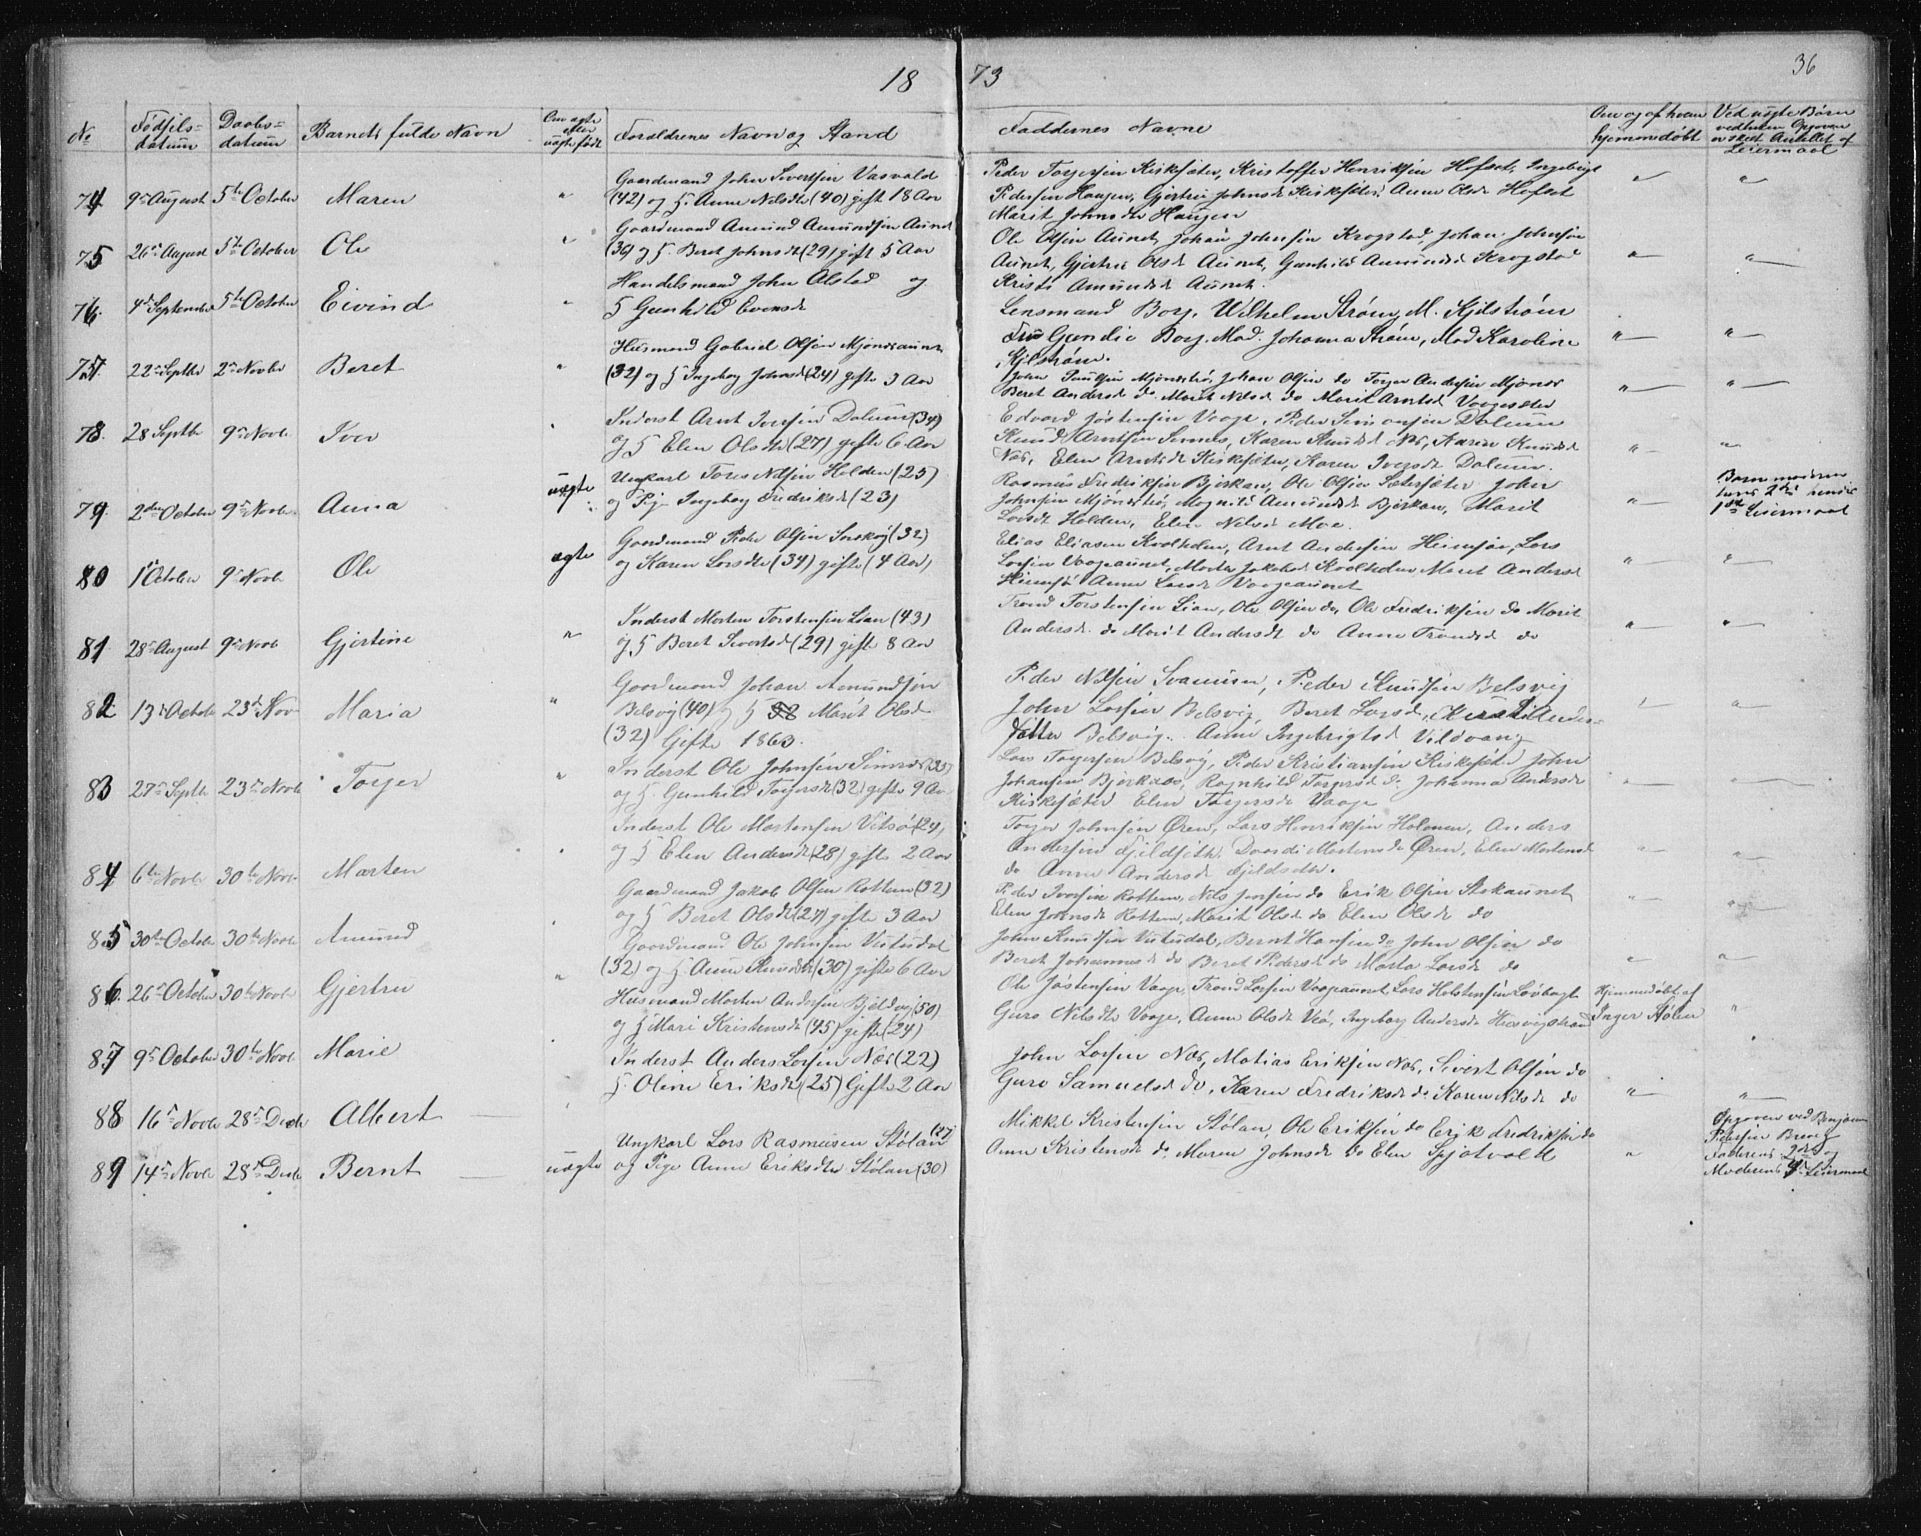 18 73
36
No Fødsels=datum Daabs=datum Barnets fulde Navn Om ægte eller uægte født Forældrenes Navn og Stand Faddernes Navne Om og af hvem hjemmedøbt Ved uægte Børn
74 9de August 5te October Maren " Gaardmand John Sivertsen Vasvald
(42) og H. Anne Nilsdt (40) gift 18 Aar
Peder Torgersen Kiskesæter, Kristoffer Henriksen Hofset, Ingebrigt
Pedersen Haugen, Gjertru Johnsdt Kiskesæter, Anne Olsdt Hofset
Marit Johnsdt Haugen
75 26de August 5te October Ole " Gaardmand Amund Amundsen Aunet
og H. Beret Johnsdt (29) gift 5 Aar
Ole Olsen Aunet, Johan Johnsen Krogstad, Johan Johnsen
Aunet, Gjertru Olsdt Aunet, Gunhild Amundsdt Krogstad
Kristi Amundsdt Aunet.
76 4de September 5te October Eivind " Handelsmand John Alstad og
H Gunhild Evensdt
Lensmand Borg, Wilhelm Strøm, M. Kjelstrøm
Fru Borg, Mad. Johanna Strøm, Mad Karoline
Kjelstrøm.
77 22de Septbr 2de Novbr Beret " Husmand Gabriel Olsen Mjønesaunet
(32) og H Ingeborg Johnsdt (24) gifte 3 Aar
John Paulsen, Johan Olsen do Torger Andersen Mjønes
Beret Andersdt do Marit Nilsdt do Marit Arntsdt Vaagesæter
78 28 Septbr 9de Novbr Iver " Inderst Arnt Iversen Dalum (34)
og H Elen Olsdt (27) gifte 6 Aar
Edvard Jøstensen Vaage, Peder Simonsen Dalum
Knud Arntsen Semnes, Karen Knudsdt Næs, Karen Knudsdt
Næs, Elen Arntsdt Kiskesæter, Karen Iversdt Dalum.
79 2den October 9de Novbr Anna uægte Ungkarl Tores Nilsen Holden (25)
og Pige Ingeborg Fredriksdt (23)
Rasmus Fredriksen Bjerkan, Ole Olsen Sætersæter John
Johnsen, Magnild Amundsdt Bjerkan, Marit
Larsdt Holden, Elen Nilsdt Moe.
Barnemoderen
hendes
1ste Leiermaal
80 1ste October 9de Novbr Ole ægte Gaardmand Peder Olsen (32)
og Karen Larsdt (34) gifte (4 Aar)
Elias Eliasen Kvolholm, Arnt Andersen Heimsjø, Lars
Larsen Vaageaunet, Morten Jakobsd Kvolholm Meret Andersd
Heimsjø Anne Larsdt Vaageaunet
81 28de August 9de Novbr Gjertine " Inderst Morten Torstensen Lian (43)
og H Beret Sivertsd (29) gifte 8 Aar
Trond Torstensen Lian, Ole Olsen do, Ole Fredriksen do Marit
Andersdt do Marit Andersdt do Anne Trondsd do
82 13de Octobr 23de Nov Maria " Gaardmand Johan Amundsen
Belsvig (40) og H Marit Olsd
(32) Gifte 1863.
Peder Nilsen Svanem, Peder Knudsen Belsvig
John Larsen Belsvig, Beret Larsdt, Kirsti Anders=
datter Belsvig. Anne Ingebrigtsd Vildvang
83 27de Septbr 23de Novbr Torger " Inderst Ole Johnsen Simnes (35)
og H. Gunhild Torgersdt (32) gifte 9 Aar
Lars Torgersen Belsvig, Peder Kristiansen Kiskesæter John
Johansen Bjerkan, Ragnhild Torgersdt do Johanna Andersdt
Kiskesæter Elen Torgersdt Vaage
84 6te Novbr 30te Novbr Morten " Inderst Ole Mortensen Vitsø (24)
og H Elen Andersdt (28) gifte 2 Aar
Torger Johnsen Øren, Lars Henriksen Holonen, Anders
Andersen Fjeldseth, Dordi Mortensdt Øren, Elen Mortensd
do Anne Andersdt Fjeldseth.
85 30te October 30te Novbr Amund " Gaardmand Jakob Olsen Rottem (32)
og H Beret Olsdt (24) gifte 3 Aar
Peder Iversen Rottem, Nils Jensen do Erik Olsen Stokaunet
Elen Johnsdt Rottem, Marit Olsdt do Elen Olsdt do
86 26de October 30te Novbr Gjertru " Gaardmand Ole Johnsen Vuttudal
(32) og H Anne Knudsdt (30) gifte 6 Aar
John Knudsen Vuttudal, Bernt Hansen do John Olsen do
Beret Johannesdt do Beret Pedersdt do Marta Larsdt do
87 9de October 30te Novbr Marie " Husmand Morten Andersen Bjeldvig (50)
og H Mari Kristensdt (45) gifte (24)
Ole Jøstensen Vaage, Trond Larsen Vaageaunet, Lars Holstensen Lovbagt
Guro Nilsdt Vaage, Anne Olsdt, Ingeborg Andersdt
Hjemmedøbt af
Inger Stølen
88 16de Novbr 28de Decbr Albert " Inderst Anders Larsen Næs (22)
H. Oline Eriksdt (25) Gifte 2 Aar
John Larsen Næs, Matias Eriksen Næs, Sivert Olsen do
Guro Samuelsd do, Karen Fredriksdt do Karen Nilsdt do
89 14de Novbr 28de Decbr Bernt uægte Ungkarl Lars Rasmusen Stølan (27)
og Pige Anne Eriksdtr Stølan (30)
Mikkel Kristensen Stølan, Ole Eriksen do Erik Fredriksen do
Anne Kristensdt do Maren Johnsdt do Elen Gjøtvold
Opgaven ved Benjamin
Petersen Breng
Faderens 2det og
Moderens Leiermaal